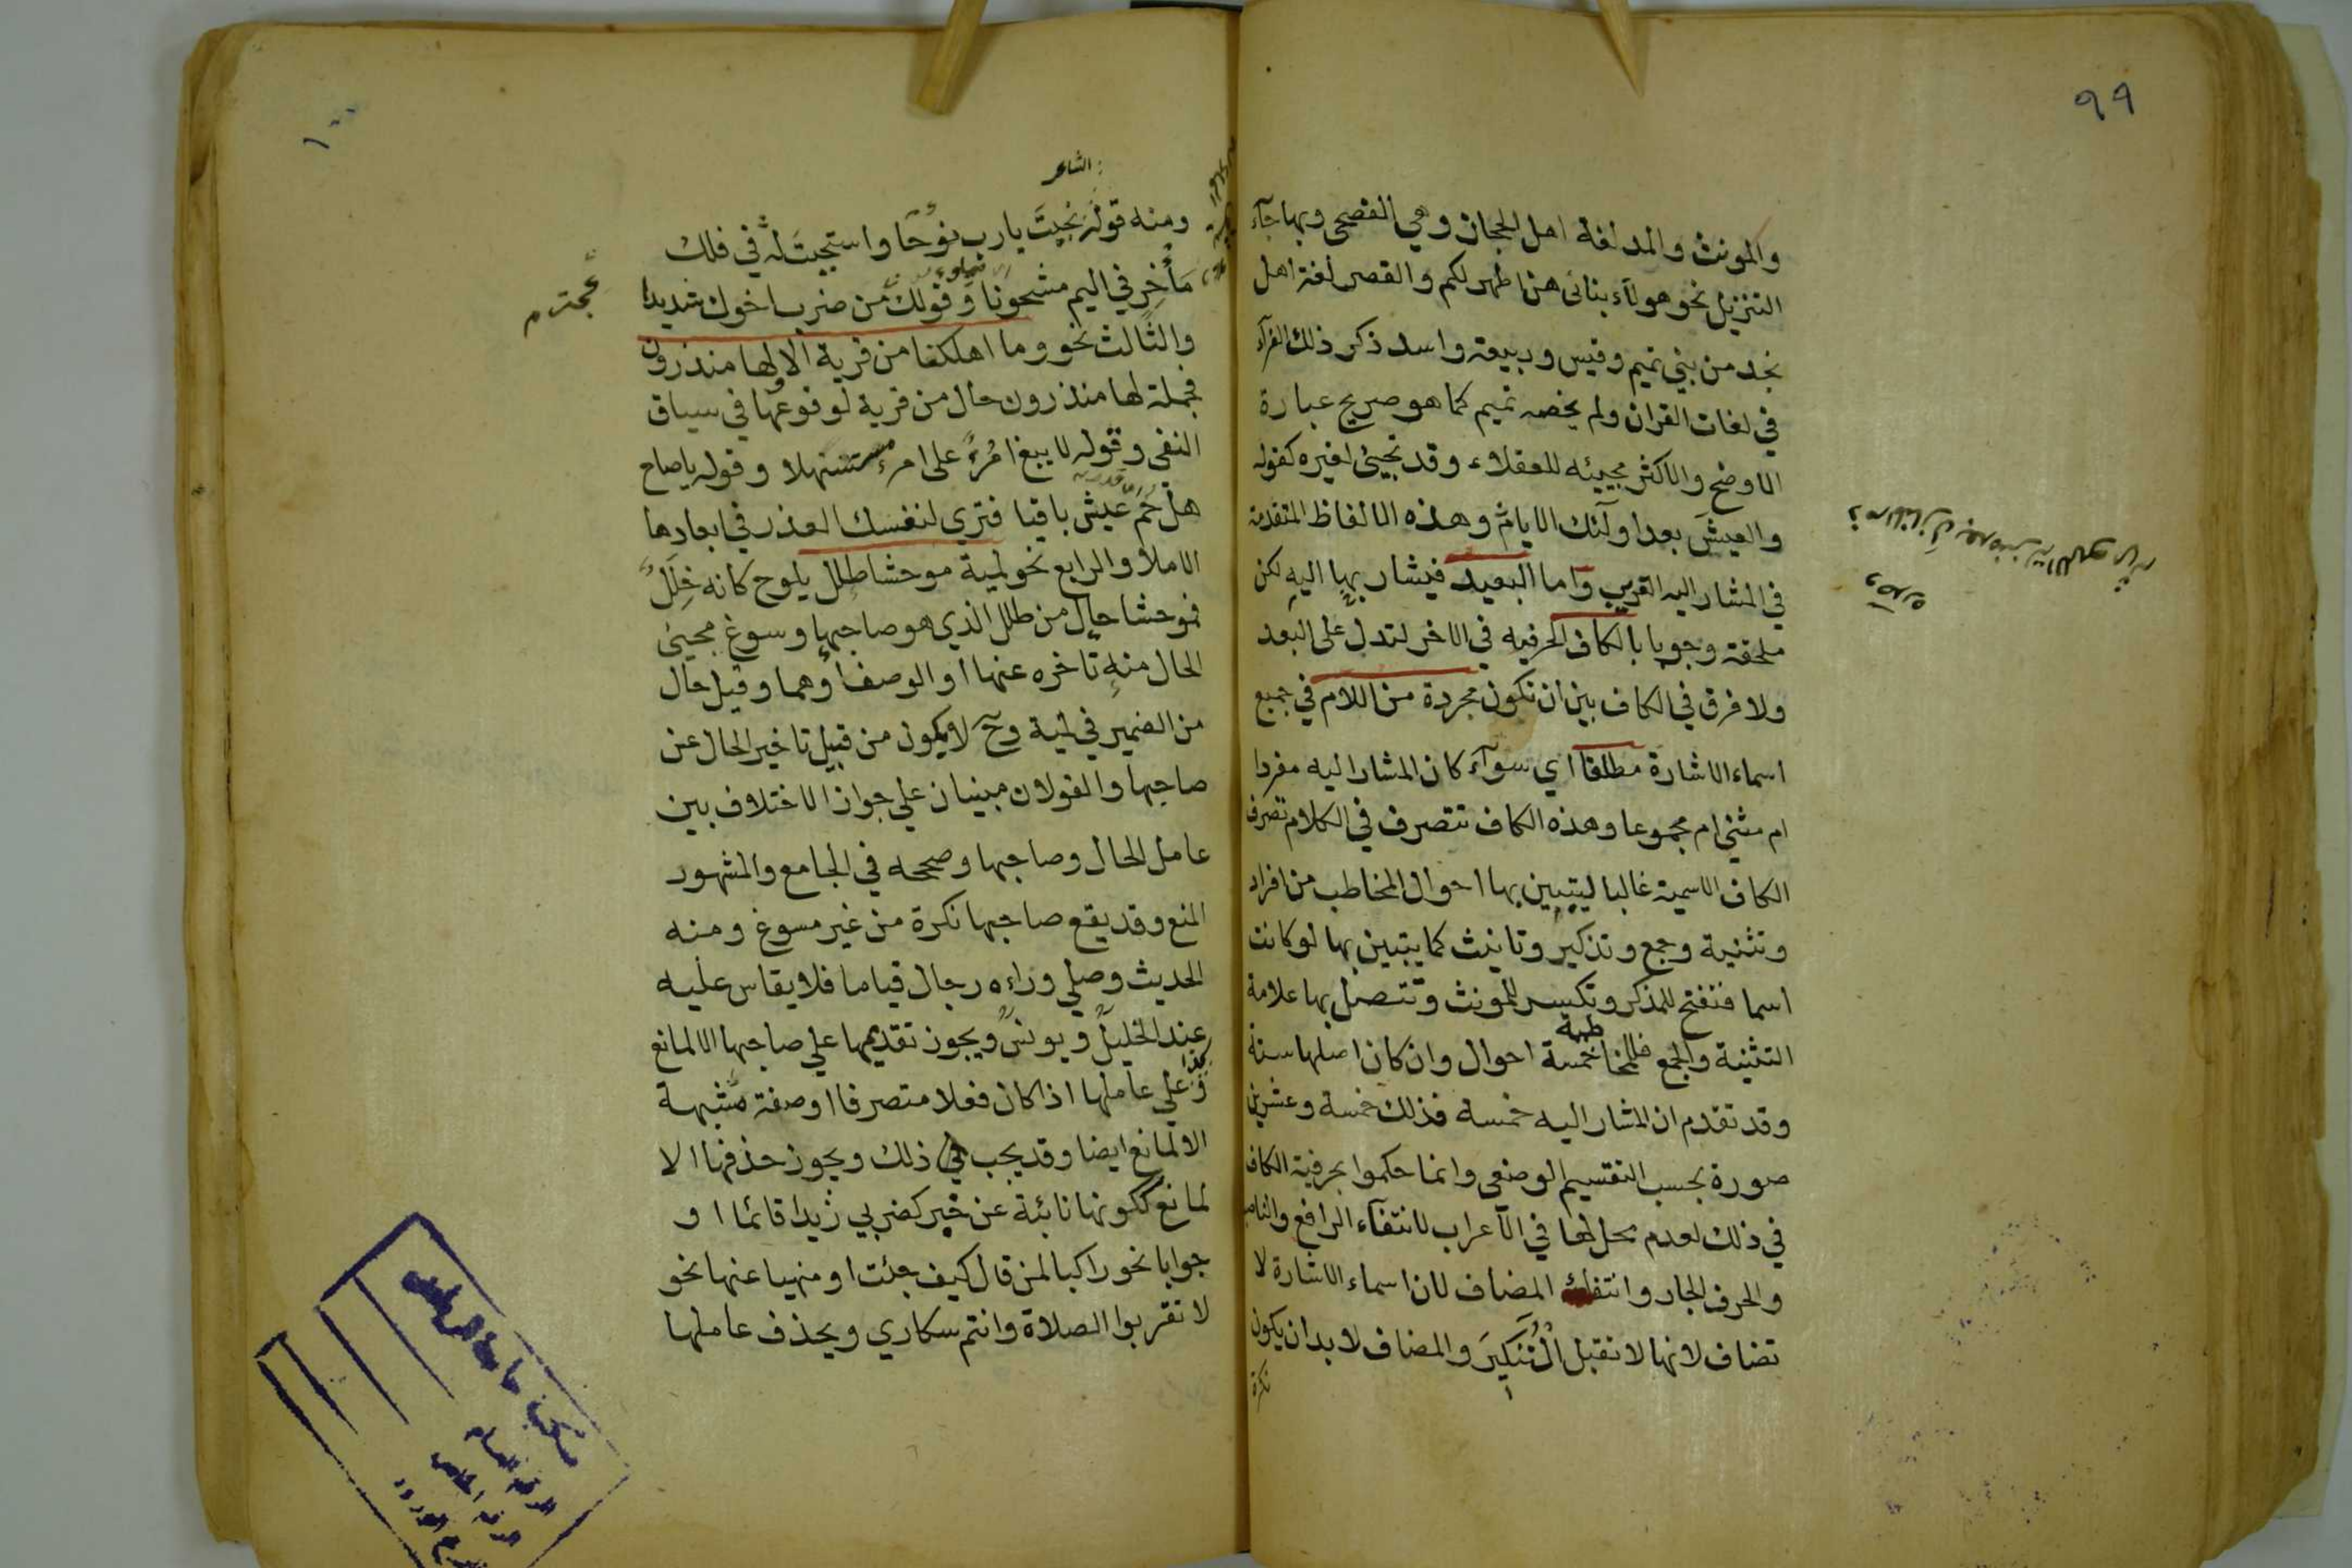 ٩٩
والمونث والمد لغة اهل الحجاز وهي الفصحى وبها جآء
التنزيل نحو هولآء بناتى هن اطهر لكم والقصر لغة اهل
نجد من بني تميم وقيس وربيعة واسد ذكر ذلك الفرآء
في لغات القران ولم يخصه تميم كما هو صريح عبارة
الاوضح والاكثر مجيئه للعقلاء وقد تجيئ لغيره كقوله
والعيش بعد اولئك الايام وهذه الالفاظ المتقدمة
في المشار اليه القريب واما البعيد فيشار بها اليه لكن
ملحقة وجوبا بالكاف الحرفيه في الاخر لتدل على البعد
ولا فرق في الكاف بين ان تكون مجردة من اللام في جميع
اسماء الاشارة مطلقا اي سوآء كان المشار اليه مفردا
ام مثنى ام مجموعا وهذه الكاف تتصرف في الكلام تصرف
الكاف الاسمية غالبا ليتبين بها احوال المخاطب من افراد
وتثنية وجمع وتذكير وتانيث كما يتبين بها لو كانت
اسما فتفتح للمذكر وتكسر للمونث وتتصل بها علامة
التثنية والجمع فللمخاطبة خمسة احوال وان كان اصلها ستة
وقد تقدم ان المشار اليه خمسة فذلك خمسة وعشرين
صورة بحسب التقسيم الوضعى وانما حكموا بحرفية الكاف
في ذلك لعدم محل لها في الآعراب لانتفآء الرافع والناصب
والحرف الجار وانتفاء المضاف لان اسماء الاشارة لا
تضاف لانها لا تقبل التنكير والمضاف لا بد ان يكون
نكرة
ذم المنازل بعد منزلة اللوى
وصدره
١٠٠
الشاعر
ومنه قوله نجيت يارب نوحا واستجبت له في فلك
مأخر في اليم مشحونا وقولك من ضرب اخوك شديدا
والثالث نحو وما اهلكنا من قرية الا ولها منذرون
فجملة لها منذرون حال من قرية لوقوعها في سياق
النفى وقوله لا يبغ امرء على امرء مستسهلا وقوله ياصاح
هل حم عيش باقيا فترى لنفسك العذر في ابعادها
الاملا والرابع نحو لمية موحشا طلل يلوح كانه خلل
فموحشا حال من طلل الذي هو صاحبها وسوغ مجيئ
الحال منه تاخره عنها او الوصف او هما وقيل حال
من الضمير في لمية وح لا يكون من قبيل تاخير الحال عن
صاحبها والقولان مبنيان علي جواز الاختلاف بين
عامل الحال وصاحبها وصححه في الجامع والمشهور
المنع وقد يقع صاحبها نكرة من غير مسوغ ومنه
الحديث وصلي وراءه رجال قياما فلا يقاس عليه
عند الخليل ويونس ويجوز تقديمها علي صاحبها الا لمانع
وكذا علي عاملها اذا كان فعلا متصرفا او صفة مشبهة
الا لمانع ايضا وقد يجب في ذلك ويجوز حذفها الا
لمانع ككونها نائبة عن خبر كضربي زيدا قائما او
جوابا نحو راكبا لمن قال كيف جئت او منهيا عنها نحو
لا تقربوا الصلاة وانتم سكاري ويحذف عاملها